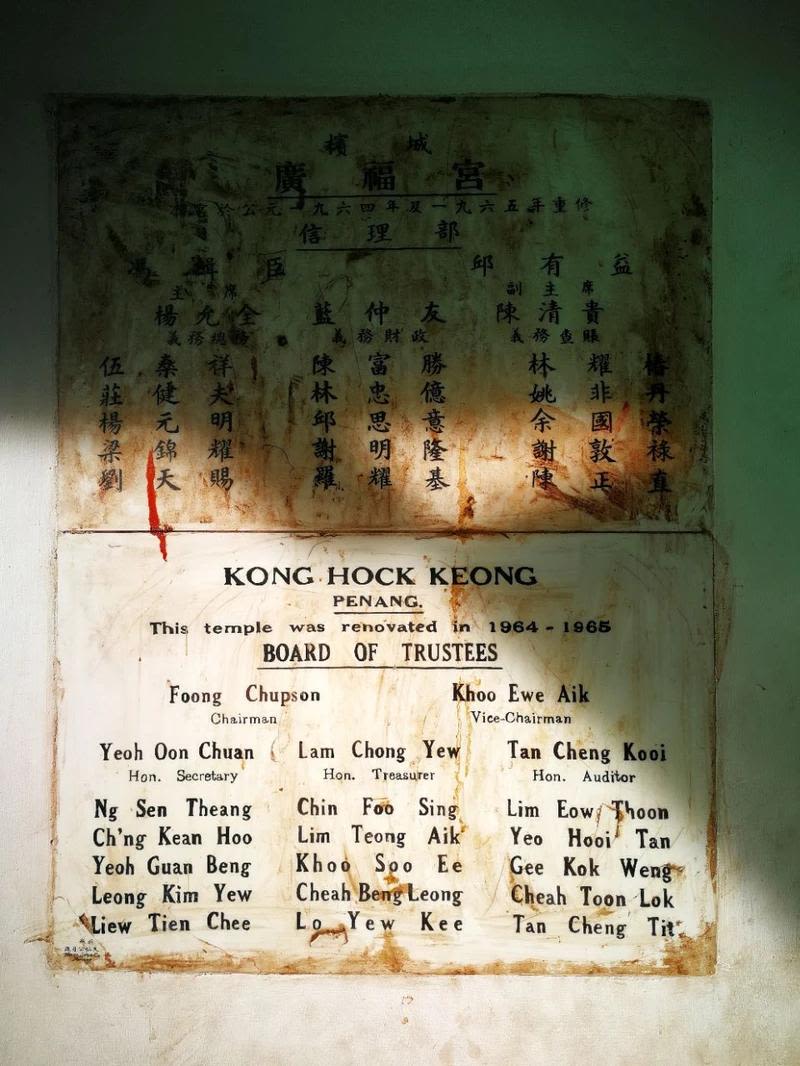 檳城
廣福宮
於公元一九六四年及一九六五年重修
信理部
緝臣 邱有益
主席 副主席
楊允全 藍仲友 陳清貴
義務總務 義務財政 義務查賬
伍桑祥 陳富勝 林耀椿
莊健夫 林忠億 姚非丹
楊元明 邱思意 余國榮
梁錦耀 謝明隆 謝敦祿
劉天賜 羅耀基 陳正直
KONG HOCK KEONG
PENANG.
This temple was renovated in 1964 - 1965
BOARD OF TRUSTEES
Foong Chupson Khoo Ewe Aik
Chairman Vice-Chairman
Yeoh Oon Chuan Lam Chong Yew Tan Cheng Kooi
Hon. Secretary Hon. Treasurer Hon. Auditor
Ng Sen Theang Chin Foo Sing Lim Eow Thoon
Ch'ng Kean Hoo Lim Teong Aik Yeo Hooi Tan
Yeoh Guan Beng Khoo Soo Ee Gee Kok Weng
Leong Kim Yew Cheah Beng Leong Cheah Toon Lok
Liew Tien Chee Lo Yew Kee Tan Cheng Tit